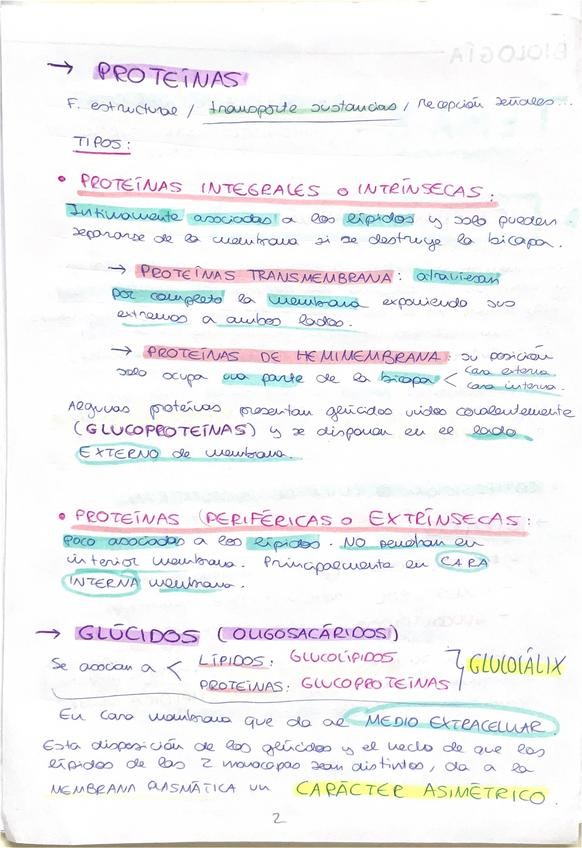 BIOLOGÍA
→ PROTEÍNAS
F. estructural / transporte sustancias / recepción señales...
TIPOS:
• PROTEÍNAS INTEGRALES o INTRÍNSECAS:
Íntimamente asociadas a los lípidos y solo pueden
separarse de la membrana si se destruye la bicapa.
→ PROTEÍNAS TRANSMEMBRANA: atraviesan
por completo la membrana exponiendo sus
extremos a ambos lados.
→ PROTEÍNAS DE HEMIMEMBRANA: su posición
solo ocupa una parte de la bicapa < cara externa
cara interna.
Algunas proteínas presentan glúcidos unidos covalentemente
(GLUCOPROTEÍNAS) y se disponen en el lado
EXTERNO de membrana.
• PROTEÍNAS (PERIFÉRICAS o EXTRÍNSECAS:
Poco asociadas a los lípidos. NO penetran en
interior membrana. Principalmente en CARA
INTERNA membrana.
→ GLÚCIDOS (OLIGOSACÁRIDOS)
Se asocian a < LÍPIDOS: GLUCOLÍPIDOS
PROTEÍNAS: GLUCOPROTEÍNAS } GLUCOCÁLIX
En cara membrana que da al MEDIO EXTRACELULAR
Esta disposición de los glúcidos y el hecho de que los
lípidos de las 2 monocapas sean distintos, da a la
MEMBRANA PLASMÁTICA un CARÁCTER ASIMÉTRICO.
2